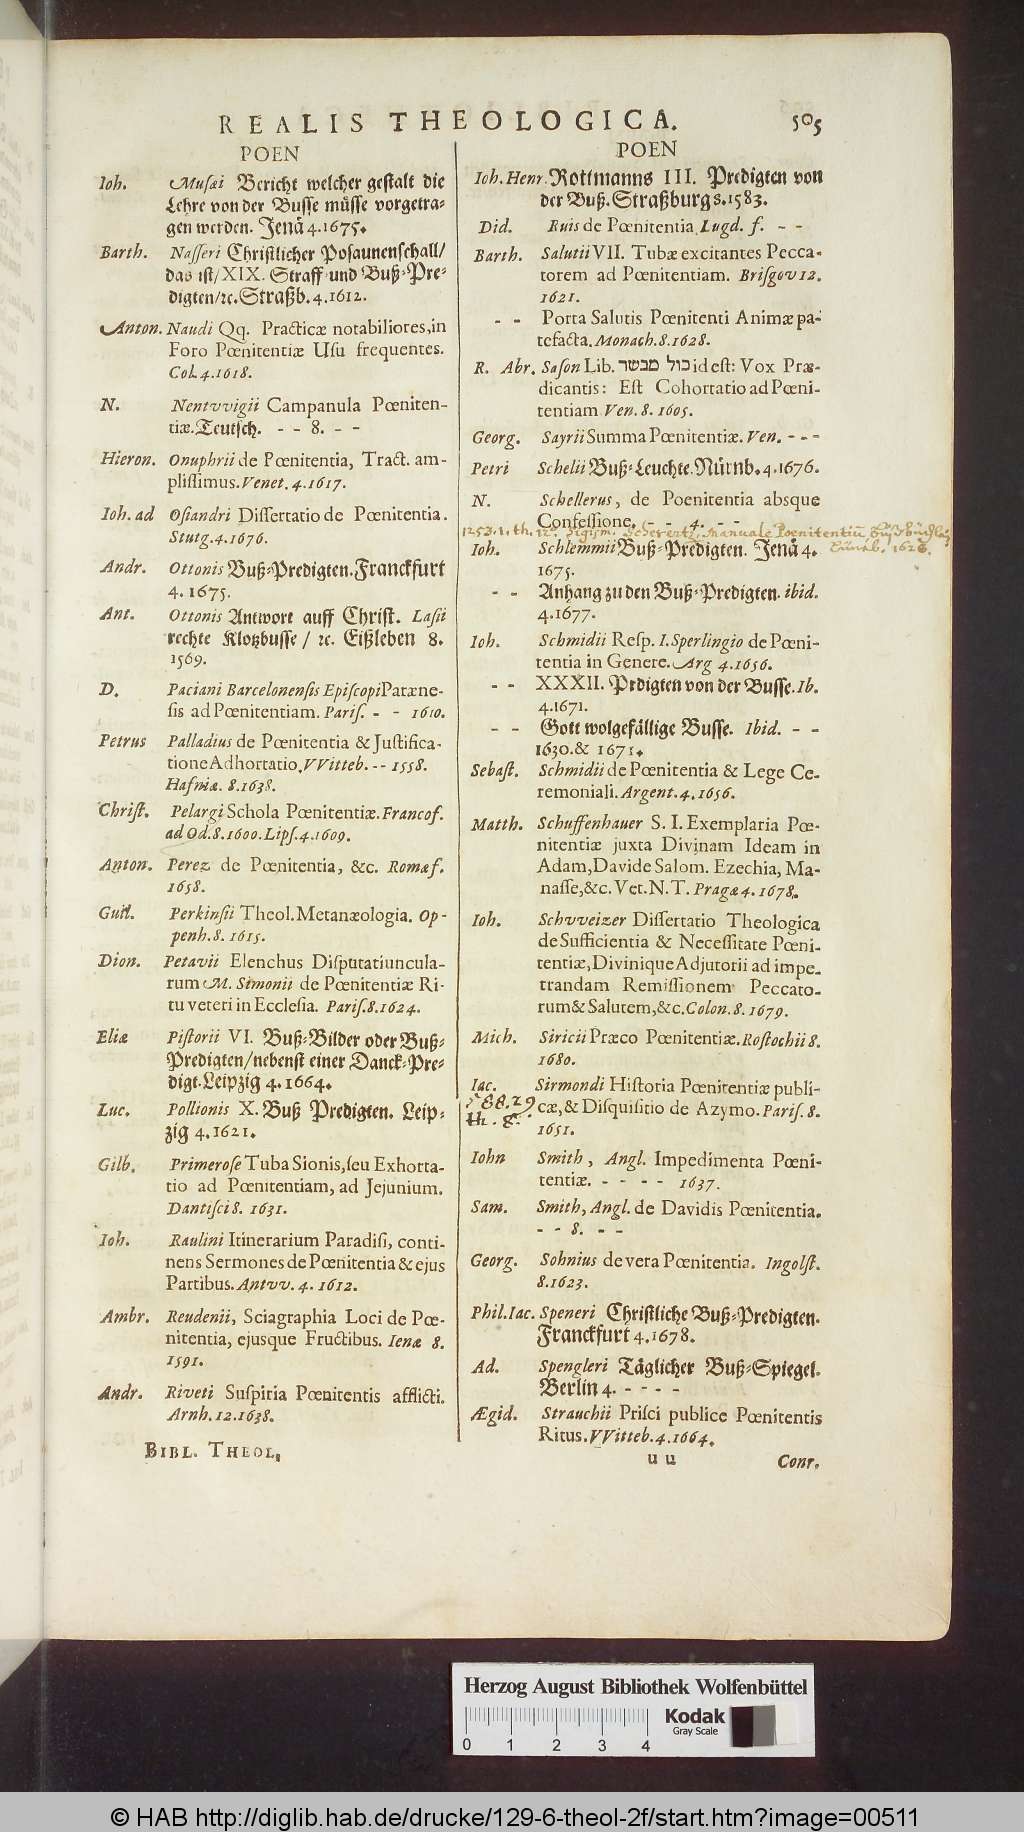 REALIS THEOLOGICA. 505
POEN
Ioh. Musæi Bericht welcher gestalt die
Lehre von der Busse müsse vorgetra-
gen werden. Jenä 4. 1675.
Barth. Nasseri Christlicher Posaunenschall/
das ist/ XIX. Straff und Buß-Pre-
digten/ ꝛc. Straßb. 4. 1612.
Anton. Naudi Qq. Practicæ notabiliores, in
Foro Pœnitentiæ Usu frequentes.
Col. 4. 1618.
N. Nentvvigii Campanula Pœniten-
tiæ. Teutsch. - - 8. - -
Hieron. Onuphrii de Pœnitentia, Tract. am-
plissimus. Venet. 4. 1617.
Ioh. ad Osiandri Dissertatio de Pœnitentia.
Stutg. 4. 1676.
Andr. Ottonis Buß-Predigten. Franckfurt
4. 1675.
Ant. Ottonis Antwort auff Christ. Lasii
rechte Klotzbusse / ꝛc. Eißleben 8.
1569.
D. Paciani Barcelonensis Episcopi Paræne-
sis ad Pœnitentiam. Paris. - - 1610.
Petrus Palladius de Pœnitentia & Justifica-
tione Adhortatio. VVitteb. - - 1558.
Hafniæ. 8. 1638.
Christ. Pelargi Schola Pœnitentiæ. Francof.
ad Od. 8. 1600. Lips. 4. 1609.
Anton. Perez de Pœnitentia, &c. Romæ f.
1658.
Guil. Perkinsii Theol. Metanæologia. Op-
penh. 8. 1615.
Dion. Petavii Elenchus Disputatiuncula-
rum M. Simonii de Pœnitentiæ Ri-
tu veteri in Ecclesia. Paris. 8. 1624.
Eliæ Pistorii VI. Buß-Bilder oder Buß-
Predigten/ nebenst einer Danck-Pre-
digt. Leipzig 4. 1664.
Luc. Pollionis X. Buß Predigten. Leip-
zig 4. 1621.
Gilb. Primerose Tuba Sionis, seu Exhorta-
tio ad Pœnitentiam, ad Jejunium.
Dantisci 8. 1631.
Ioh. Raulini Itinerarium Paradisi, conti-
nens Sermones de Pœnitentia & ejus
Partibus. Antvv. 4. 1612.
Ambr. Reudenii, Sciagraphia Loci de Pœ-
nitentia, ejusque Fructibus. Ienæ 8.
1591.
Andr. Riveti Suspiria Pœnitentis afflicti.
Arnh. 12. 1638.
BIBL. THEOL.
POEN
Ioh. Henr. Rottmanns III. Predigten von
der Buß. Straßburg 8. 1583.
Did. Ruis de Pœnitentia. Lugd. f. - -
Barth. Salutii VII. Tubæ excitantes Pecca-
torem ad Pœnitentiam. Brisgov 12.
1621.
- - Porta Salutis Pœnitenti Animæ pa-
tefacta. Monach. 8. 1628.
R. Abr. Sason Lib. כול מבשר id est: Vox Præ-
dicantis: Est Cohortatio ad Pœni-
tentiam Ven. 8. 1605.
Georg. Sayrii Summa Pœnitentiæ. Ven. - - -
Petri Schelii Buß-Leuchte. Nürnb. 4. 1676.
N. Schellerus, de Poenitentia absque
Confessione. - - 4. - -
1253. 1. th. 12º Sigism. Scherertz. Manuale Poenitentiū
Lüneb. 1626.
Ioh. Schlemmii Buß-Predigten. Jenä 4.
1675.
- - Anhang zu den Buß-Predigten. ibid.
4. 1677.
Ioh. Schmidii Resp. I. Sperlingio de Pœni-
tentia in Genere. Arg 4. 1656.
- - XXXII. Prdigten von der Busse. Ib.
4. 1671.
- - Gott wolgefällige Busse. Ibid. - -
1630. & 1671.
Sebast. Schmidii de Pœnitentia & Lege Ce-
remoniali. Argent. 4. 1656.
Matth. Schuffenhauer S. I. Exemplaria Pœ-
nitentiæ juxta Divinam Ideam in
Adam, Davide Salom. Ezechia, Ma-
nasse, &c. Vet. N. T. Pragæ 4. 1678.
Ioh. Schvveizer Dissertatio Theologica
de Sufficientia & Necessitate Pœni-
tentiæ, Divinique Adjutorii ad impe-
trandam Remissionem Peccato-
rum & Salutem, &c. Colon. 8. 1679.
Mich. Siricii Præco Pœnitentiæ. Rostochii 8.
1680.
Iac. Sirmondi Historia Pœnitentiæ publi-
cæ, & Disquisitio de Azymo. Paris. 8.
1651.
588. 29
th. 8º
Iohn Smith, Angl. Impedimenta Pœni-
tentiæ. - - - - 1637.
Sam. Smith, Angl. de Davidis Pœnitentia.
- - 8. - -
Georg. Sohnius de vera Pœnitentia. Ingolst.
8. 1623.
Phil. Iac. Speneri Christliche Buß-Predigten.
Franckfurt 4. 1678.
Ad. Spengleri Täglicher Buß-Spiegel.
Berlin 4. - - - -
Ægid. Strauchii Prisci publice Pœnitentis
Ritus. VVitteb. 4. 1664.
uu Conr.
Herzog August Bibliothek Wolfenbüttel
Kodak
Gray Scale
0 1 2 3 4
© HAB http://diglib.hab.de/drucke/129-6-theol-2f/start.htm?image=00511